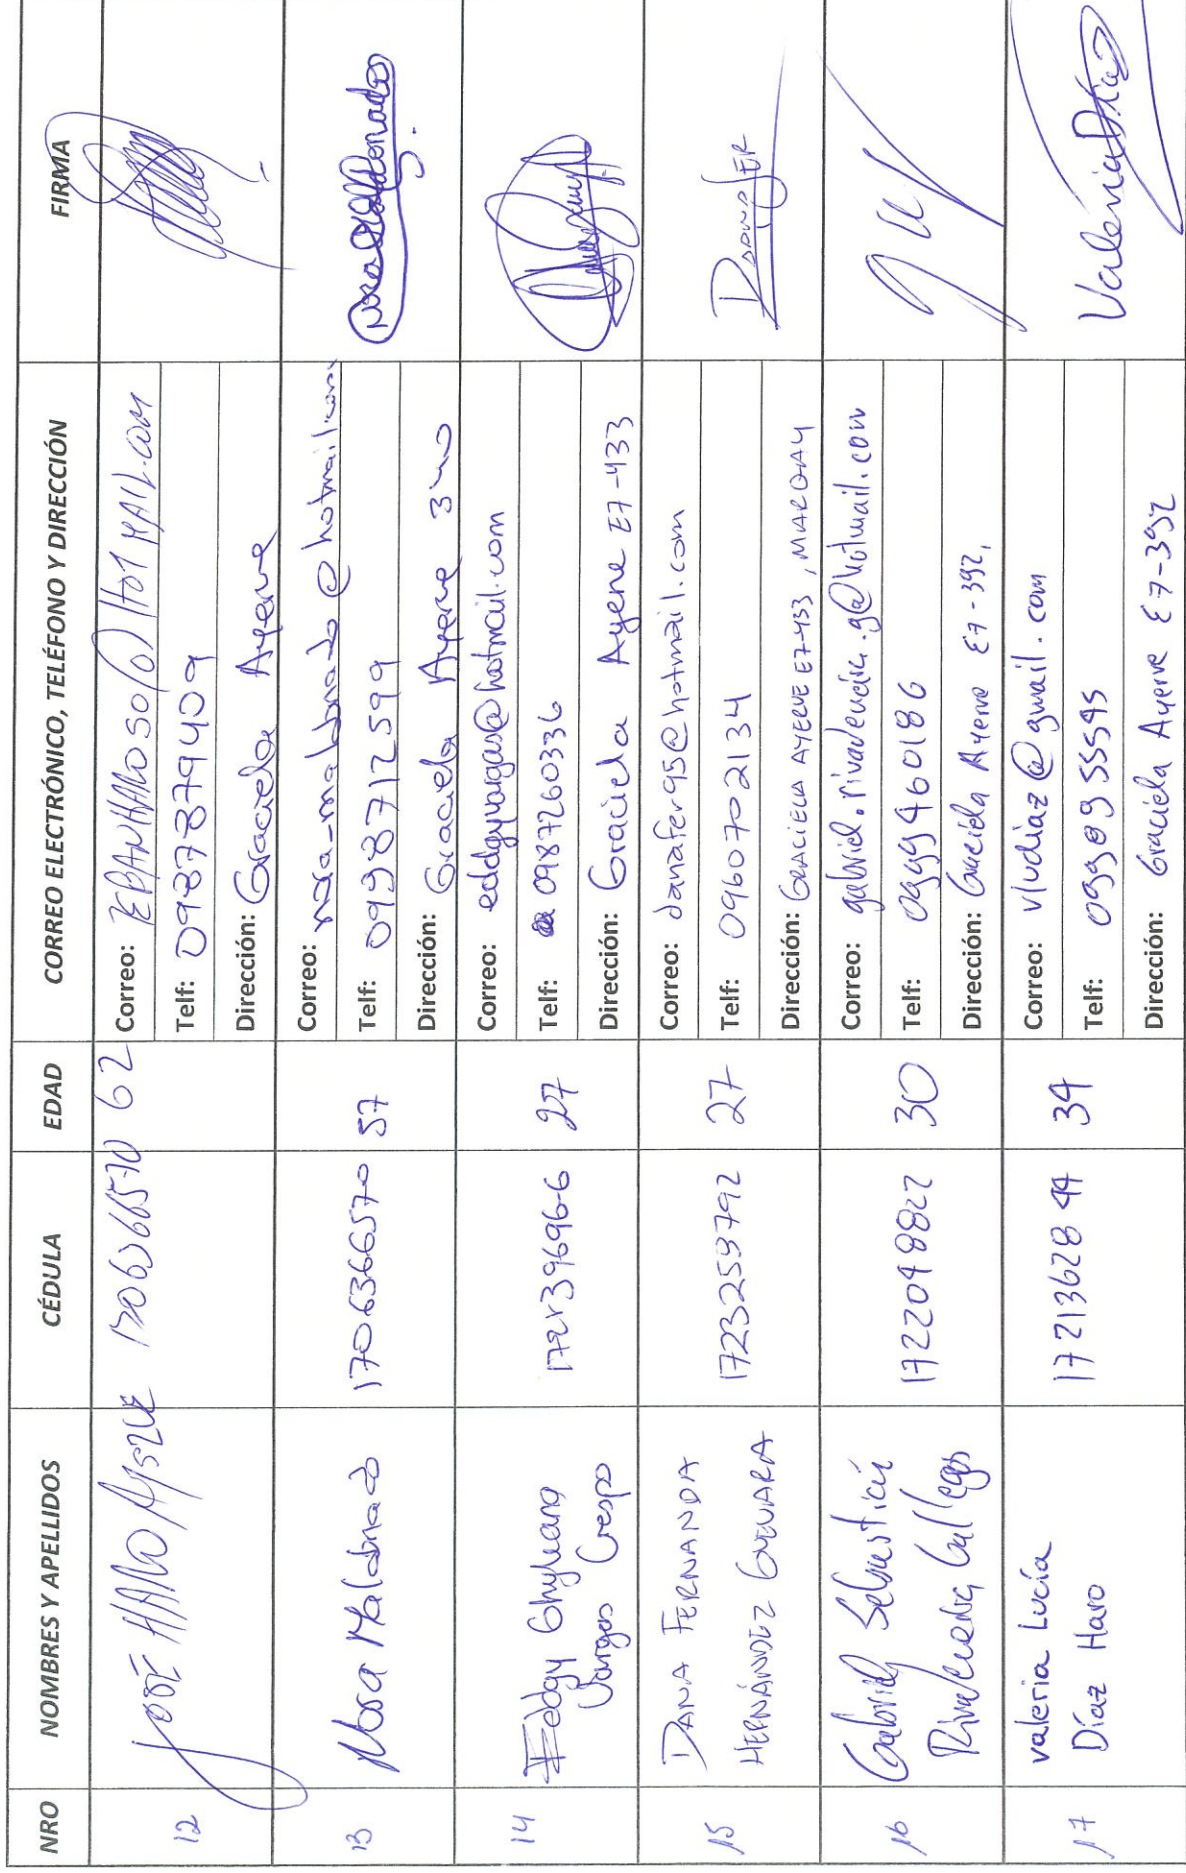 NRO NOMBRES Y APELLIDOS CÉDULA EDAD CORREO ELECTRÓNICO, TELÉFONO Y DIRECCIÓN FIRMA
12 JOSÉ HARO 62
Correo: HOTMAIL.COM
Telf: 0987879409
Dirección: Graciela Ayerve
13 Maldonado 1706366570 57
Correo: @hotmail.com
Telf: 0998712599
Dirección: Graciela Ayerve
14 Eddgy Ghyleana
Vargas Crespo
27
Correo: eddgyvargas@hotmail.com
Telf: 0987260336
Dirección: Graciela Ayerve E7-433
15 DANA FERNANDA
HERNÁNDEZ GUEVARA
1723259792 27
Correo: danafer95@hotmail.com
Telf: 0960702134
Dirección: GRACIELA AYERVE E7-433, MARQAY
DanaFER
16 Gabriel Sebastián
Rivadeneira Gallegos
1722049822 30
Correo: gabriel.rivadeneira.g@hotmail.com
Telf: 0999460186
Dirección: Graciela Ayerve E7-392,
17 valeria Lucía
Díaz Haro
1721362844 34
Correo: vludiaz@gmail.com
Telf:
Dirección: Graciela Ayerve E7-392
Valeria Díaz